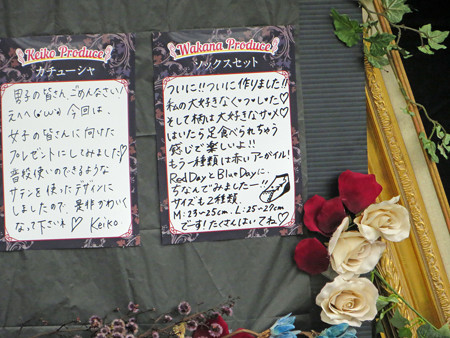 Keiko Produce
カチューシャ
男子の皆さん、ごめんなさい!
えへへ(･ω･) 今回は、
女子の皆さんに向けた
プレゼントにしてみました♡
普段使いのできるような
サテンを使ったデザインに
しましたので、是非かわいく
なって下さいネ♡ Keiko
Wakana Produce
ソックスセット
ついに!!ついに作りました!!
私の大好きなくつした♡
そして柄は大好きなサメ♡
はいたら足食べられちゃう
感じで楽しいよ!!
もう一種類は赤いアーガイル!
Red Day と Blue Day に、
ちなんでみましたー!!
サイズも2種類。
M:23~25cm. L:25~27cm
でーす!たくさんはいてね♡